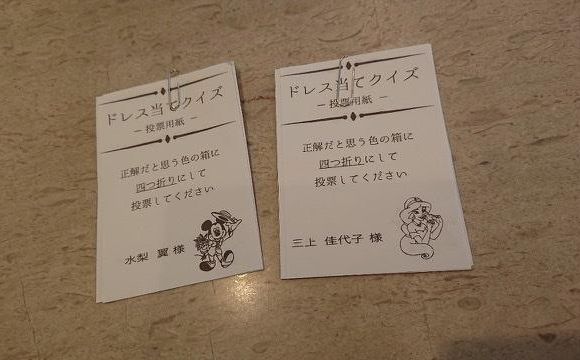 ドレス当てクイズ
－投票用紙－
正解だと思う色の箱に
四つ折りにして
投票してください
水梨 翼 様
ドレス当てクイズ
－投票用紙－
正解だと思う色の箱に
四つ折りにして
投票してください
三上 佳代子 様